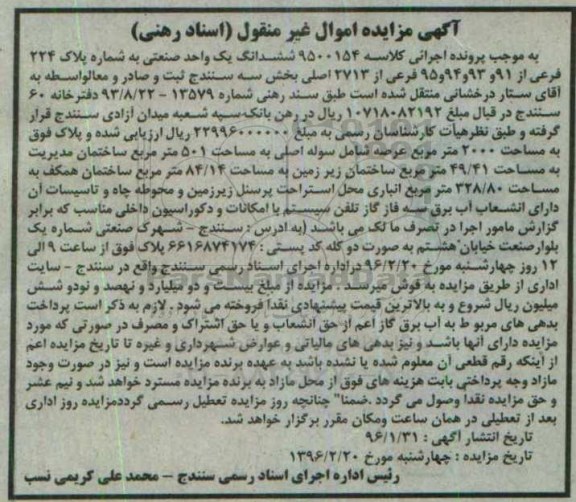 آگهی مزایده اموال غیر منقول (اسناد رهنی)
به موجب پرونده اجرائی کلاسه ۹۵۰۰۱۵۴ ششدانگ یک واحد صنعتی به شماره پلاک ۲۲۴
فرعی از ۹۱و ۹۳و۹۴و۹۵ فرعی از ۲۷۱۳ اصلی بخش سه سنندج ثبت و صادر و معالواسطه به
آقای ستار درخشانی منتقل شده است طبق سند رهنی شماره ۱۳۵۷۹ - ۹۳/۸/۲۲ دفترخانه ۶۰
سنندج در قبال مبلغ ۱۰۷۱۸۰۸۲۱۹۲ ریال در رهن بانک سپه شعبه میدان آزادی سنندج قرار
گرفته و طبق نظرهیأت کارشناسان رسمی به مبلغ ۲۲۹۹۶۰۰۰۰۰۰ ریال ارزیابی شده و پلاک فوق
به مساحت ۲۰۰۰ متر مربع عرصه شامل سوله اصلی به مساحت ۵۰۱ متر مربع ساختمان مدیریت
به مساحت ۴۹/۴۱ متر مربع ساختمان زیر زمین به مساحت ۸۴/۱۴ متر مربع ساختمان همکف به
مساحت ۳۲۸/۸۰ متر مربع انباری محل استراحت پرسنل زیرزمین و محوطه چاه و تاسیسات آن
دارای انشعاب آب برق سه فاز گاز تلفن سیستم با امکانات و دکوراسیون داخلی مناسب که برابر
گزارش مامور اجرا در تصرف ما لک می باشد (به ادرس : سنندج - شهرک صنعتی شماره یک
بلوارصنعت خیابان هشتم به صورت دو کله کد پستی : ۶۶۱۶۸۷۴۱۷۴ پلاک فوق از ساعت ۹ الی
۱۲ روز چهارشنبه مورخ ۹۶/۲/۲۰ دراداره اجرای اسناد رسمی سنندج واقع در سنندج - سایت
اداری از طریق مزایده به فروش میرسد . مزایده از مبلغ بیست و دو میلیارد و نهصد و نودو شش
میلیون ریال شروع و به بالاترین قیمت پیشنهادی نقدا فروخته می شود . لازم به ذکر است پرداخت
بدهی های مربو ط به آب برق گاز اعم از حق انشعاب و یا حق اشتراک و مصرف در صورتی که مورد
مزایده دارای آنها باشد و نیز بدهی های مالیاتی و عوارض شهرداری و غیره تا تاریخ مزایده اعم
از اینکه رقم قطعی آن معلوم شده یا نشده باشد به عهده برنده مزایده است و نیز در صورت وجود
مازاد وجه پرداختی بابت هزینه های فوق از محل مازاد به برنده مزایده مسترد خواهد شد و نیم عشر
و حق مزایده نقدا وصول می گردد .ضمنا" چنانچه روز مزایده تعطیل رسمی گرددمزایده روز اداری
بعد از تعطیلی در همان ساعت ومکان مقرر برگزار خواهد شد.
تاریخ انتشار آگهی : ۹۶/۱/۳۱
تاریخ مزایده : چهارشنبه مورخ ۱۳۹۶/۲/۲۰
رئیس اداره اجرای اسناد رسمی سنندج - محمد علی کریمی نسب